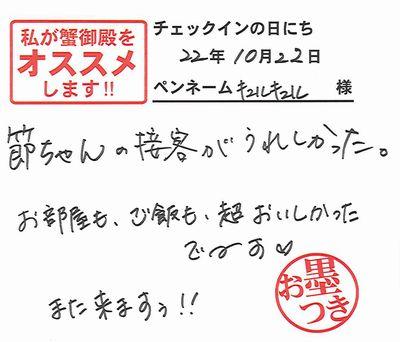 私が蟹御殿を
オススメ
します!!
チェックインの日にち
22年10月22日
ペンネーム キュルキュル 様
節ちゃんの接客がうれしかった。
お部屋も、ご飯も、超おいしかった
でーす♡
また来ますぅ!!
お墨つき